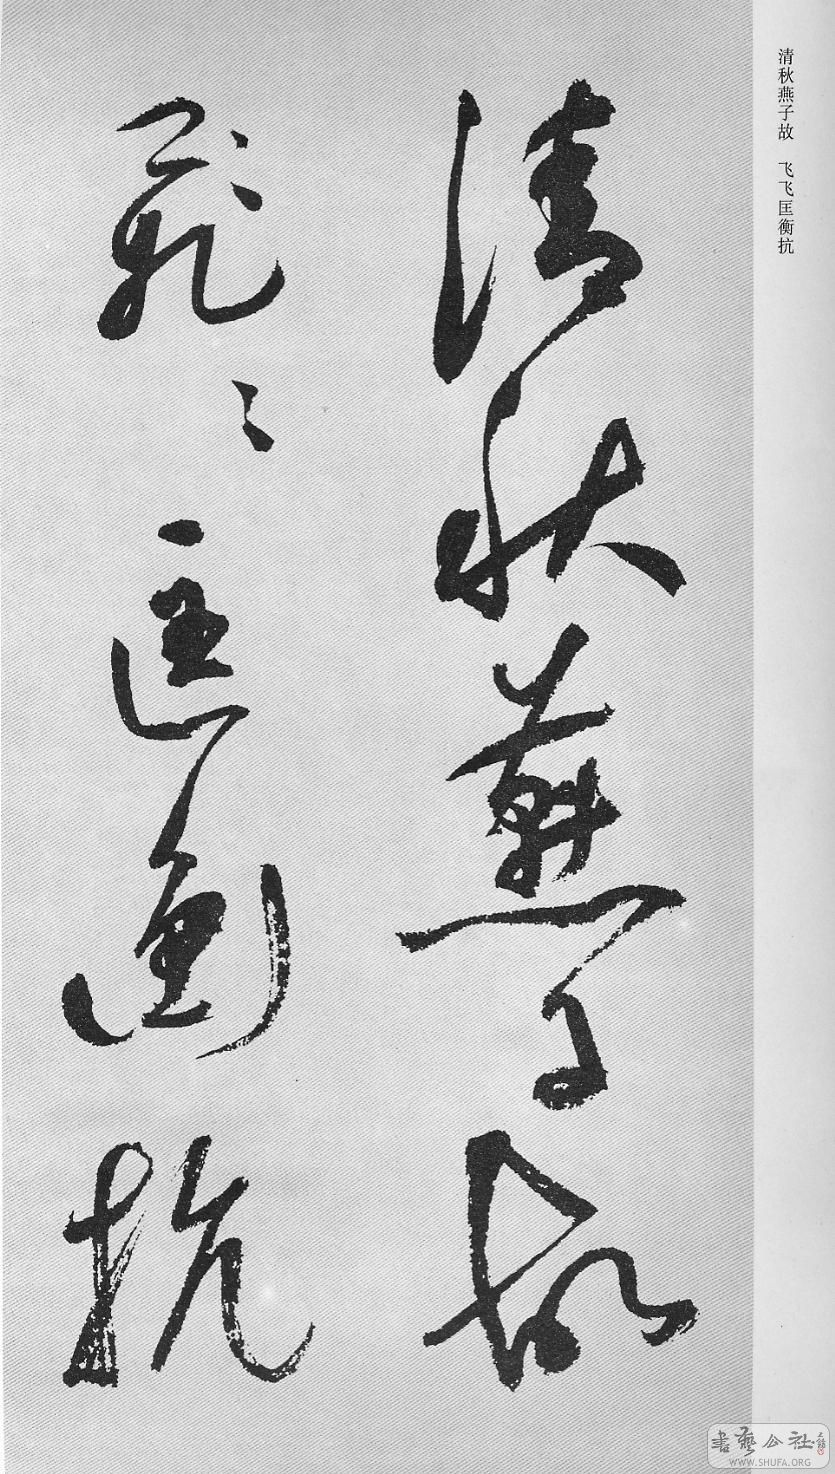 清秋燕子故　飞飞匡衡抗
清秋燕子故
飛〻匡衡抗
書藝公社
WWW.SHUFA.ORG